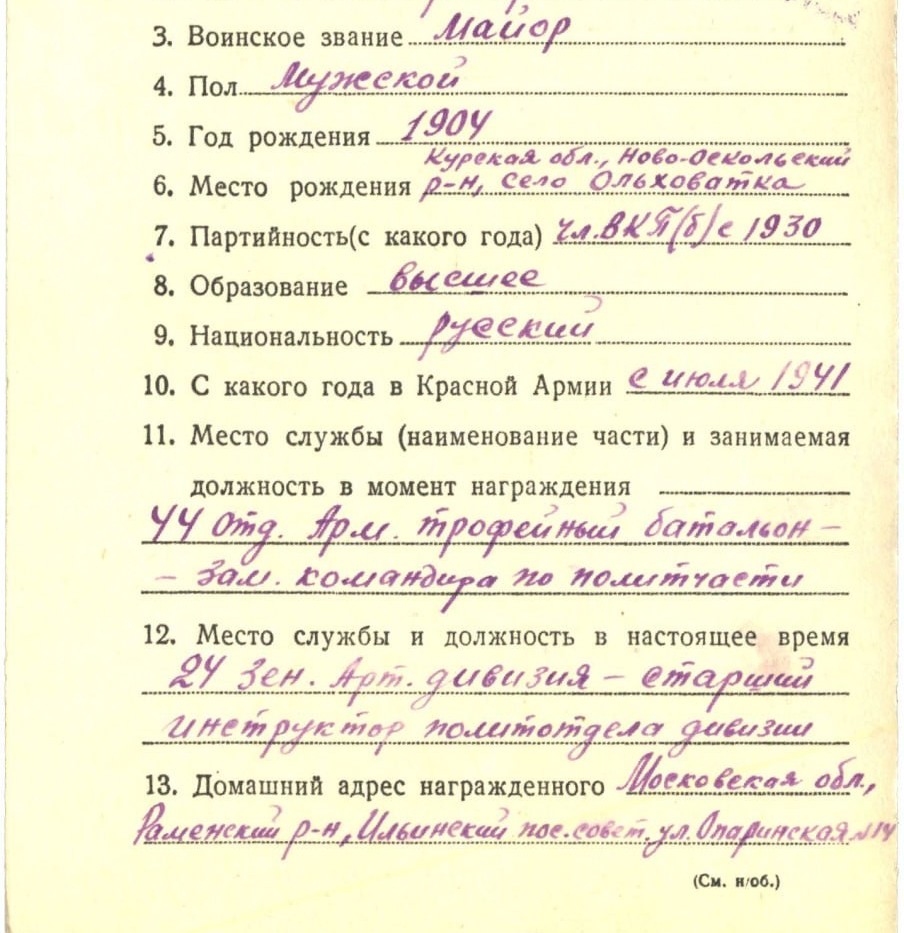 3. Воинское звание Майор
4. Пол Мужской
5. Год рождения 1904
Курская обл., Ново-Оскольский
6. Место рождения р-н, село Ольховатка
7. Партийность(с какого года) чл. ВКП(б) с 1930
8. Образование высшее
9. Национальность русский
10. С какого года в Красной Армии с июля 1941
11. Место службы (наименование части) и занимаемая
должность в момент награждения
44 Отд. Арм. трофейный батальон –
– зам. командира по политчасти
12. Место службы и должность в настоящее время
24 Зен. Арт. дивизия – старший
инструктор политотдела дивизии
13. Домашний адрес награжденного Московская обл.,
Раменский р-н, Ильинский пос. совет. ул. Опаринская №14
(См. н/об.)